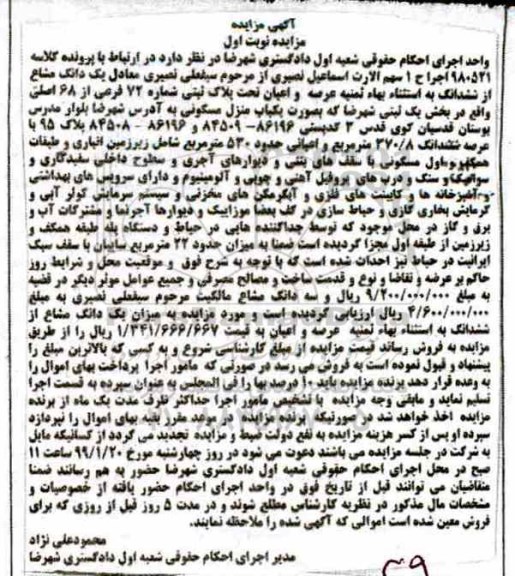 آگهی مزایده
مزایده نوبت اول
واحد اجرای احکام حقوقی شعبه اول دادگستری شهرضا در نظر دارد در ارتباط با پرونده کلاسه
۹۸۰۵۲۱ اجرا ح ۱ سهم الارث اسماعیل نصیری از مرحوم سیفعلی نصیری معادل یک دانگ مشاع
از ششدانگ به استثناء بهاء ثمنیه عرصه و اعیان تحت پلاک ثبتی شماره ۷۲ فرعی از ۶۸ اصلی
واقع در بخش یک ثبتی شهرضا که بصورت یکباب منزل مسکونی به آدرس شهرضا بلوار مدرس
بوستان قدسیان کوی قدس ۳ کدپستی ۸۶۱۹۶- ۸۴۵۰۹ و ۸۶۱۹۶ - ۸۴۵۰۸ پلاک ۹۵ با
عرصه ششدانگ ۳۷۰/۸ مترمربع و اعیانی حدود ۵۳۰ مترمربع شامل زیرزمین انباری و طبقات
همکف و اول مسکونی با سقف های بتنی و دیوارهای آجری و سطوح داخلی سفیدکاری و
سرامیک و سنگ و درب های پروفیل آهنی و چوبی و آلومینیوم و دارای سرویس های بهداشتی
و آشپزخانه ها و کابینت های فلزی و آبگرمکن های مخزنی و سیستم سرمایش کولر آبی و
گرمایش بخاری گازی و حیاط سازی در کف بعضا موزاییک و دیوارها آجرنما و مشترکات آب و
برق و گاز در محل موجود که توسط جداکننده هایی در حیاط و دستگاه پله طبقه همکف و
زیرزمین از طبقه اول مجزا گردیده است ضمنا به میزان حدود ۲۲ مترمربع سایبان با سقف سبک
ایرانیت در حیاط نیز احداث شده است که با توجه به شرح فوق و موقعیت محل و شرایط روز
حاکم بر عرضه و تقاضا و نوع و قدمت ساخت و مصالح مصرفی و جمیع عوامل موثر دیگر در قضیه
به مبلغ ۹/۲۰۰/۰۰۰/۰۰۰ ریال و سه دانگ مشاع مالکیت مرحوم سیفعلی نصیری به مبلغ
۴/۶۰۰/۰۰۰/۰۰۰ ریال ارزیابی گردیده است و مورد مزایده به میزان یک دانگ مشاع از
ششدانگ به استثناء بهاء ثمنیه عرصه و اعیان به قیمت ۱/۳۴۱/۶۶۶/۶۶۷ ریال را از طریق
مزایده به فروش رساند قیمت مزایده از مبلغ کارشناسی شروع و به کسی که بالاترین مبلغ را
پیشنهاد و قبول نموده است به فروش می رسد در صورتی که مامور اجرا پرداخت بهای اموال را
به وعده قرار دهد برنده مزایده باید ۱۰ درصد بها را فی المجلس به عنوان سپرده به قسمت اجرا
تسلیم نماید و مابقی وجه مزایده با تشخیص مامور اجرا حداکثر ظرف مدت یک ماه از برنده
مزایده اخذ خواهد شد در صورتیکه برنده مزایده در موعد مقرر بقیه بهای اموال را نپردازد
سپرده او پس از کسر هزینه مزایده به نفع دولت ضبط و مزایده تجدید می گردد از کسانیکه مایل
به شرکت در جلسه مزایده می باشند دعوت می شود در روز چهارشنبه مورخ ۹۹/۱/۲۰ ساعت ۱۱
صبح در محل اجرای احکام حقوقی شعبه اول دادگستری شهرضا حضور به هم رسانند ضمنا
متقاضیان می توانند قبل از تاریخ فوق در واحد اجرای احکام حضور یافته از خصوصیات و
مشخصات مال مذکور در نظریه کارشناس مطلع شوند و در مدت ۵ روز قبل از روزی که برای
فروش معین شده است اموالی که آگهی شده را ملاحظه نمایند.
محمودعلی نژاد
مدیر اجرای احکام حقوقی شعبه اول دادگستری شهرضا